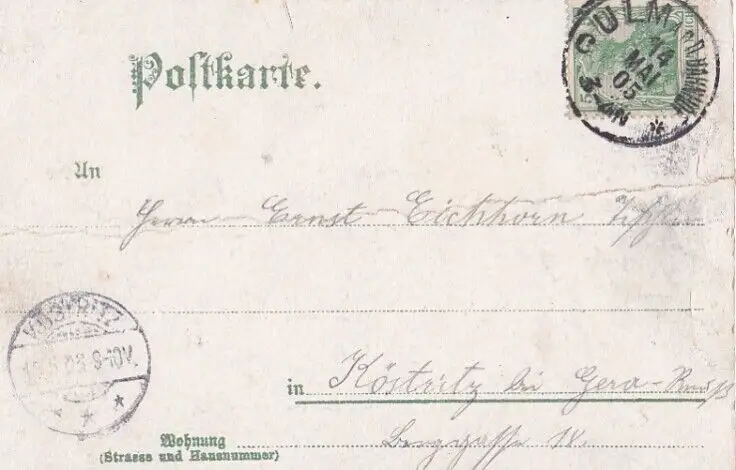 Postkarte.
CULM * BAHNHOF
14
MAI
05
3-4N
An
Herrn Ernst Eichhorn
KÖSTRITZ
5 05 9-10V.
in Köstritz bei Gera-Reuß
Wohnung
(Strasse und Hausnummer)
Berggasse 18.